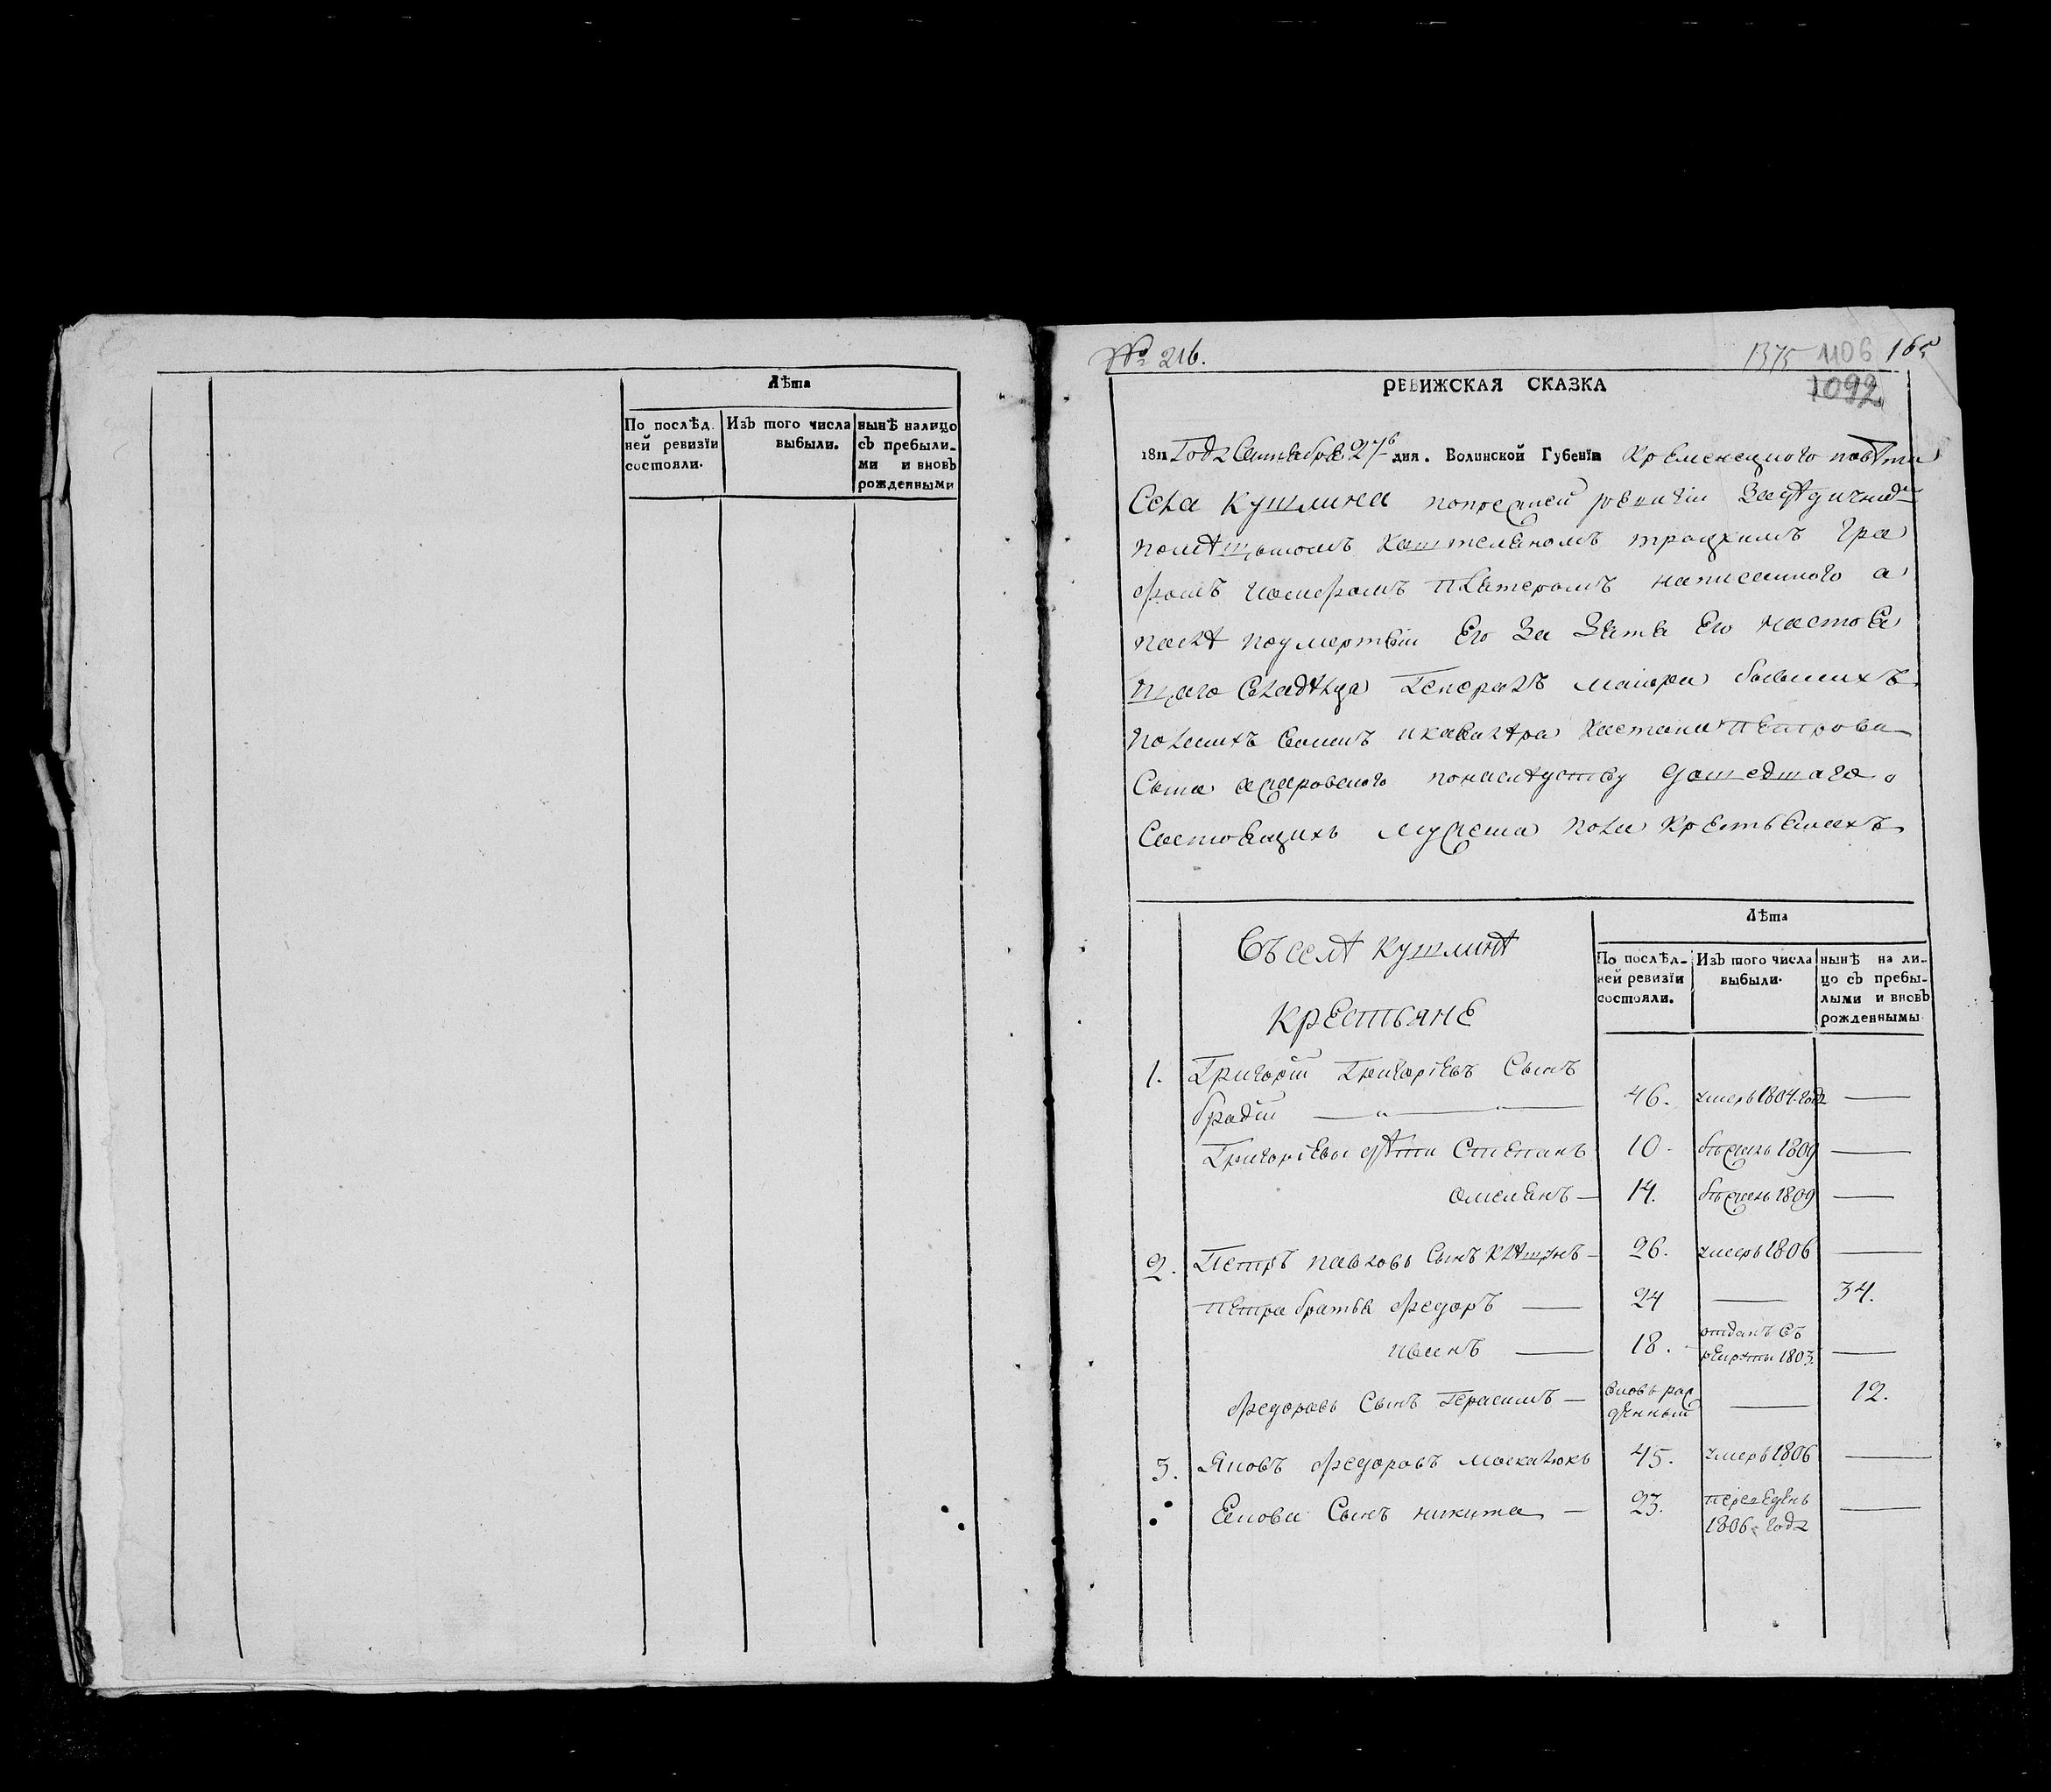 Лѣта
По послѣд.
ней ревизїи
состояли.
Изъ того числа
выбыли.
нынѣ налицо
съ пребыли-
ми и вновь
рожденными
№ 216.
1375 1106 165
1092
РЕВИЖСКАЯ СКАЗКА
1811 Года Сентября 27 дня. Волинской Губенїи Кременецкого повѣта
Села Кушлина попрежней ревизїи
помѣщикомъ Каштеляномъ троцкимъ Гра
фомъ Іосифомъ Плятеромъ написанного а
послѣ по умертвїи Его За Зятя Его настоя
щаго Владѣлца Генералъ маіора бывшихъ
Полскихъ войскъ и кавалѣра Каетана Петрова
Сына понаслѣдству дошедшаго.
Состоящихъ мужеска пола Крестьянахъ
Въ селѣ Кушлинѣ
Крестьяне
Лѣта
По послѣд-
ней ревизїи
состояли.
Изъ того числа
выбыли.
нынѣ на ли-
цо съ пребы-
лыми и вновь
рожденнымы
1. Григорій Григоріевъ Сынъ
46. умеръ 1804. года —
Григоріевы дѣти Степанъ 10. бѣжалъ 1809 —
Омелянъ — 14. бѣжалъ 1809 —
2. Петръ Павловъ Сынъ — 26. умеръ 1806 —
Петра братья Федоръ — 24 — 34.
Иванъ — 18. отданъ въ
рекруты 1803. —
Федоровъ Сынъ Герасимъ — вновь рож
денный — 12.
3. Яковъ Федоровъ Москалюкъ 45. умеръ 1806 —
Якова Сынъ Никита — 23. переведенъ
1806. года —